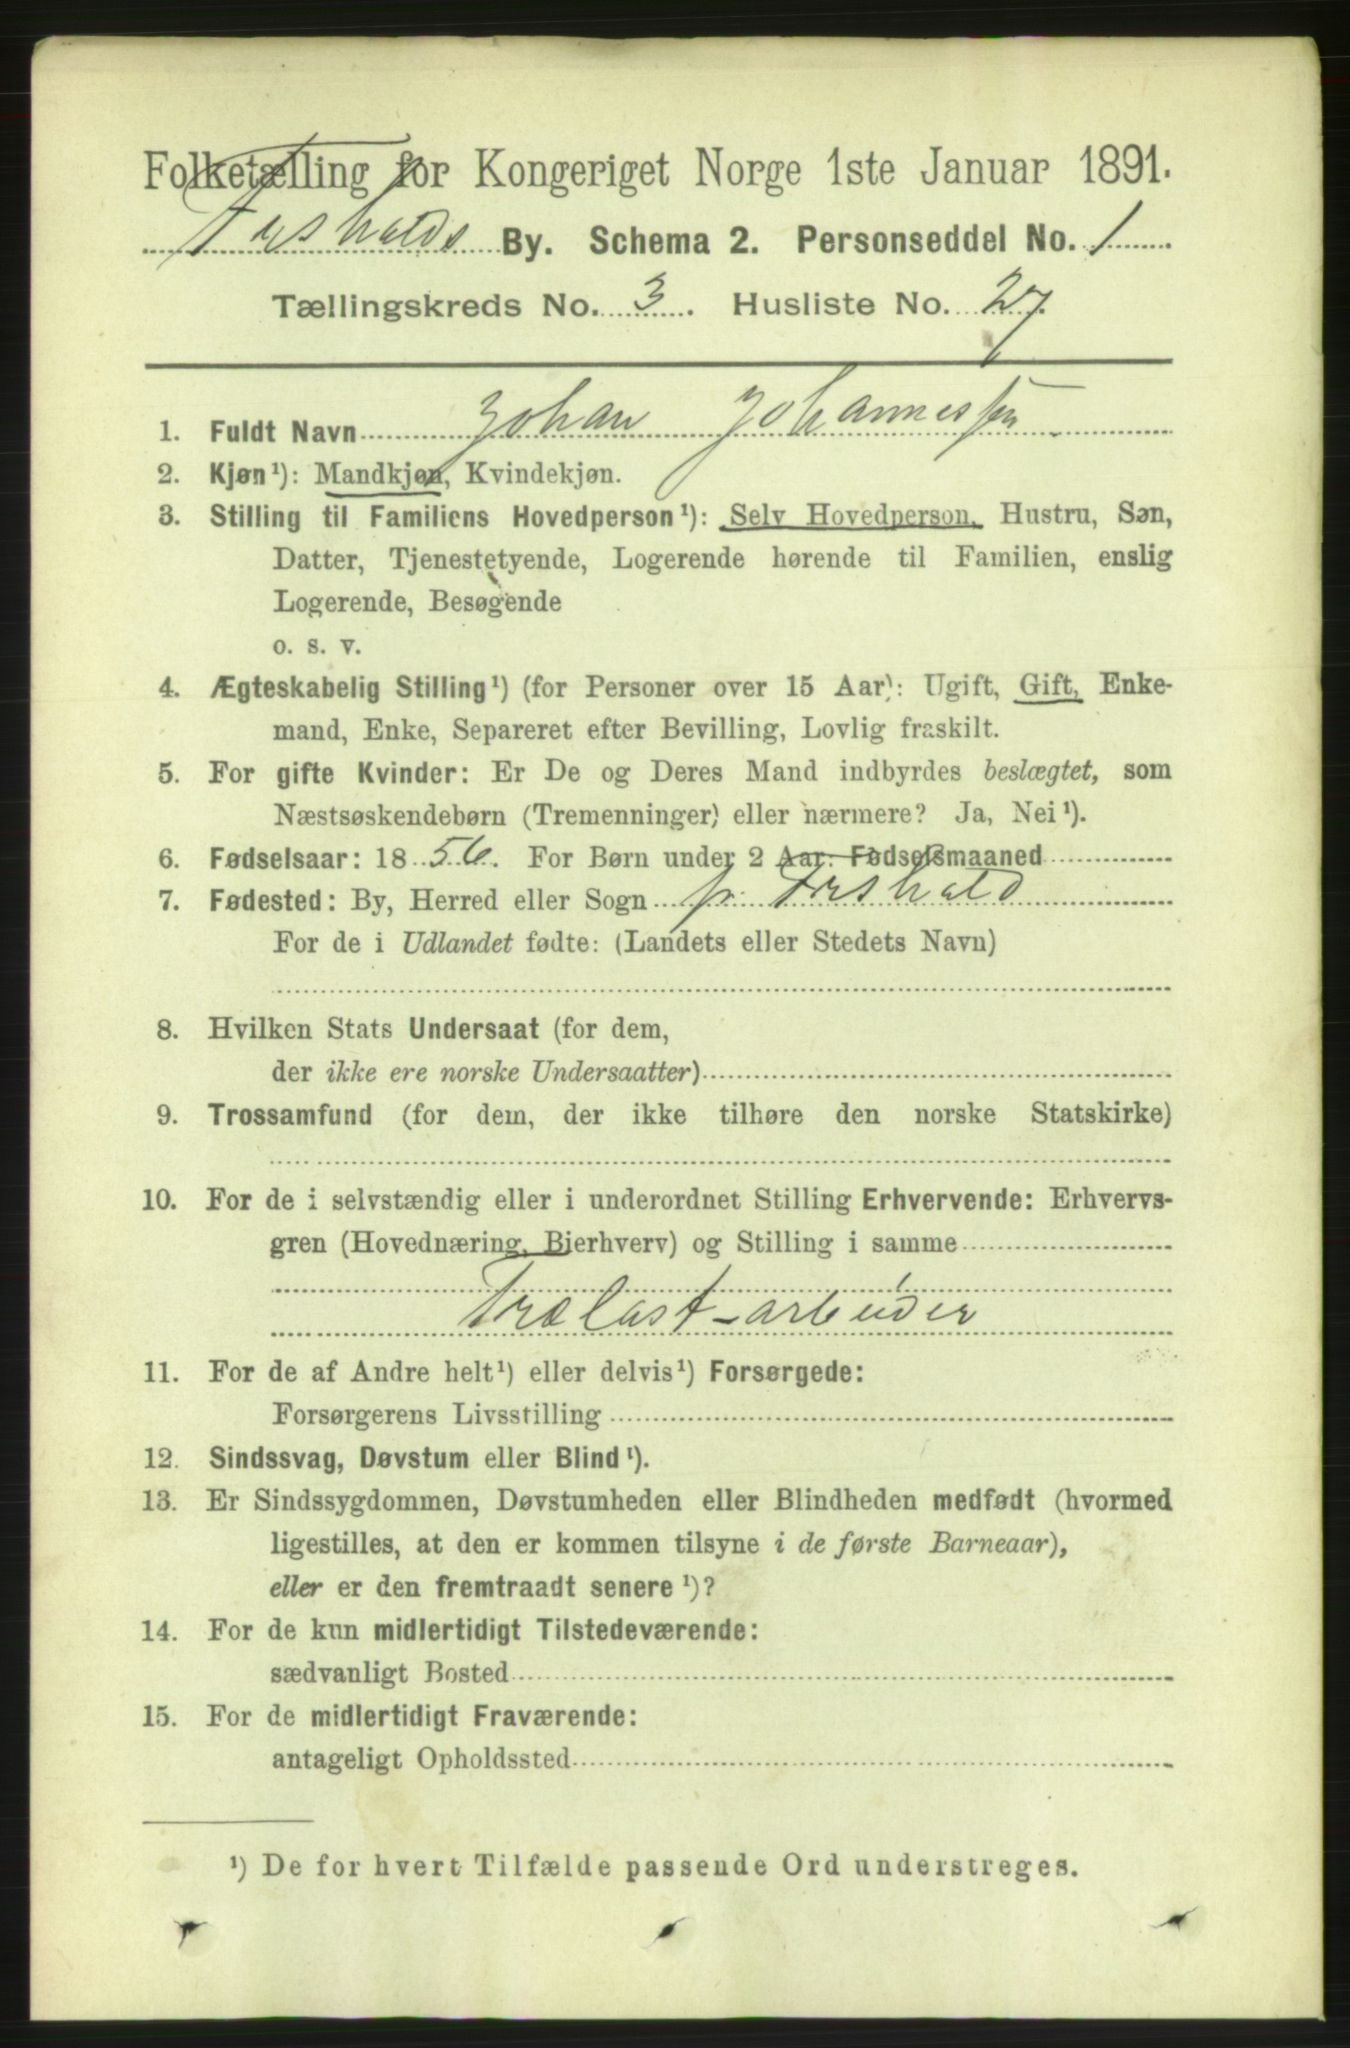 Folketælling for Kongeriget Norge 1ste Januar 1891.
Frshalds By. Schema 2. Personseddel No. 1
Tællingskreds No. 3. Husliste No. 27.
1. Fuldt Navn Johan Johannessen
2. Kjøn¹): Mandkjøn, Kvindekjøn.
3. Stilling til Familiens Hovedperson¹): Selv Hovedperson, Hustru, Søn,
Datter, Tjenestetyende, Logerende hørende til Familien, enslig
Logerende, Besøgende
o. s. v.
4. Ægteskabelig Stilling¹) (for Personer over 15 Aar): Ugift, Gift, Enke-
mand, Enke, Separeret efter Bevilling, Lovlig fraskilt.
5. For gifte Kvinder: Er De og Deres Mand indbyrdes beslægtet, som
Næstsøskendebørn (Tremenninger) eller nærmere? Ja, Nei¹).
6. Fødselsaar: 1856. For Børn under 2 Aar: Fødselsmaaned
7. Fødested: By, Herred eller Sogn pr Frshald
For de i Udlandet fødte: (Landets eller Stedets Navn)
8. Hvilken Stats Undersaat (for dem,
der ikke ere norske Undersaatter)
9. Trossamfund (for dem, der ikke tilhøre den norske Statskirke)
10. For de i selvstændig eller i underordnet Stilling Erhvervende: Erhvervs-
gren (Hovednæring, Bierhverv) og Stilling i samme
Trælast-arbeider
11. For de af Andre helt¹) eller delvis¹) Forsørgede:
Forsørgerens Livsstilling
12. Sindssvag, Døvstum eller Blind¹).
13. Er Sindssygdommen, Døvstumheden eller Blindheden medfødt (hvormed
ligestilles, at den er kommen tilsyne i de første Barneaar),
eller er den fremtraadt senere¹)?
14. For de kun midlertidigt Tilstedeværende:
sædvanligt Bosted
15. For de midlertidigt Fraværende:
antageligt Opholdssted
¹) De for hvert Tilfælde passende Ord understreges.